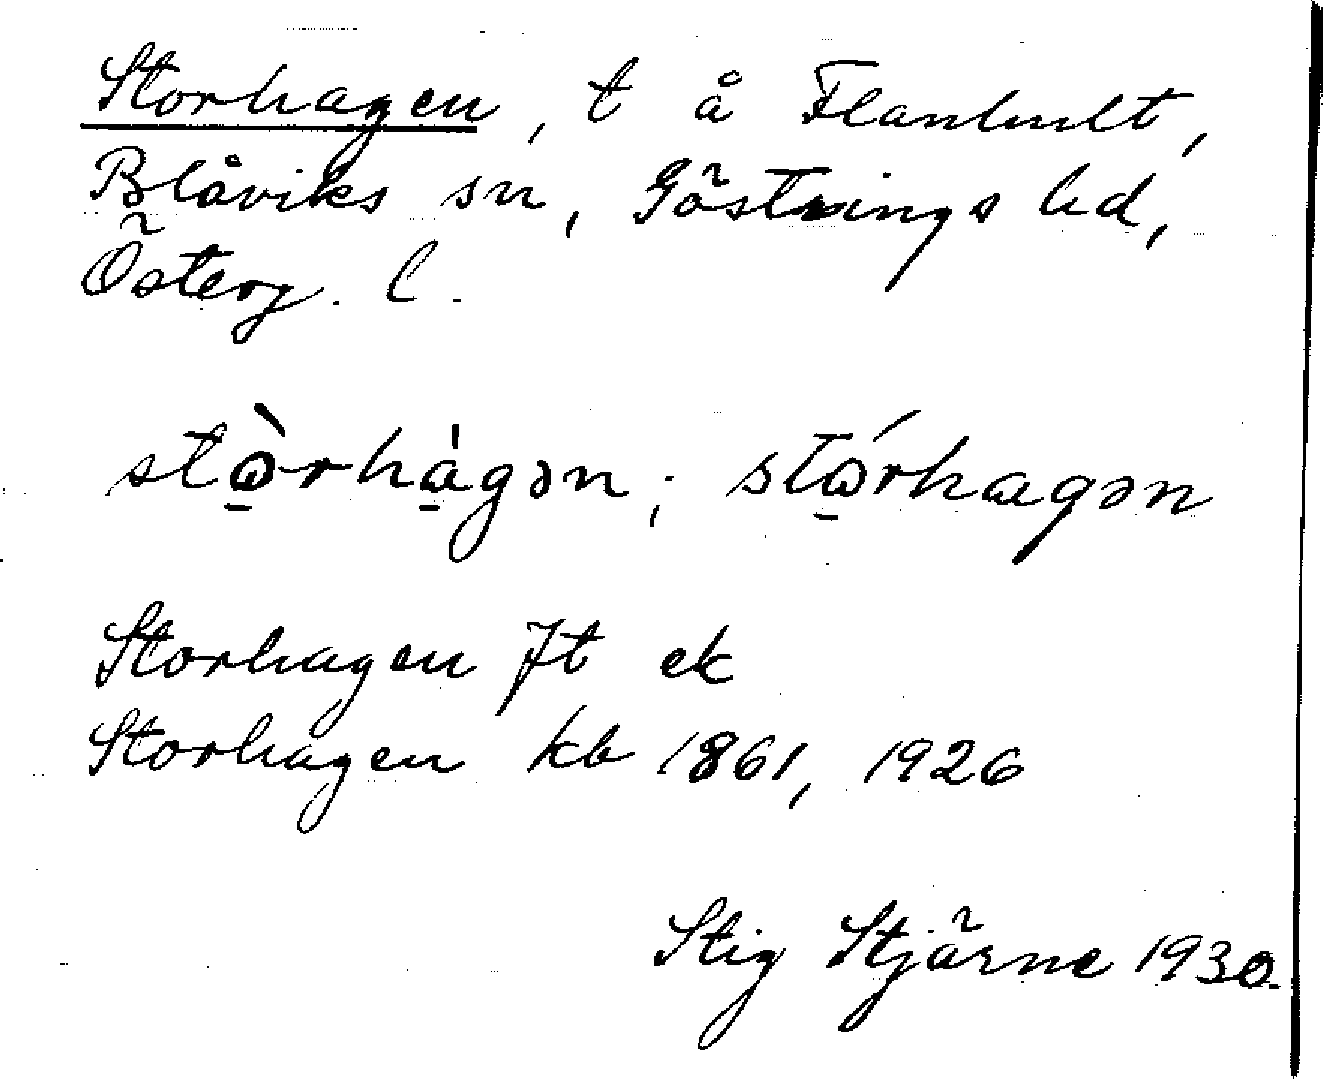 Storhagen, t å Flanhult,
Blåviks sn, Göstrings hd,
Österg. l.
stɷ̠̀rhа̠̀gən; stɷ̠́rhagən
Storhagen Jt ek
Storhagen kb 1861, 1926
Stig Stjärne 1930.